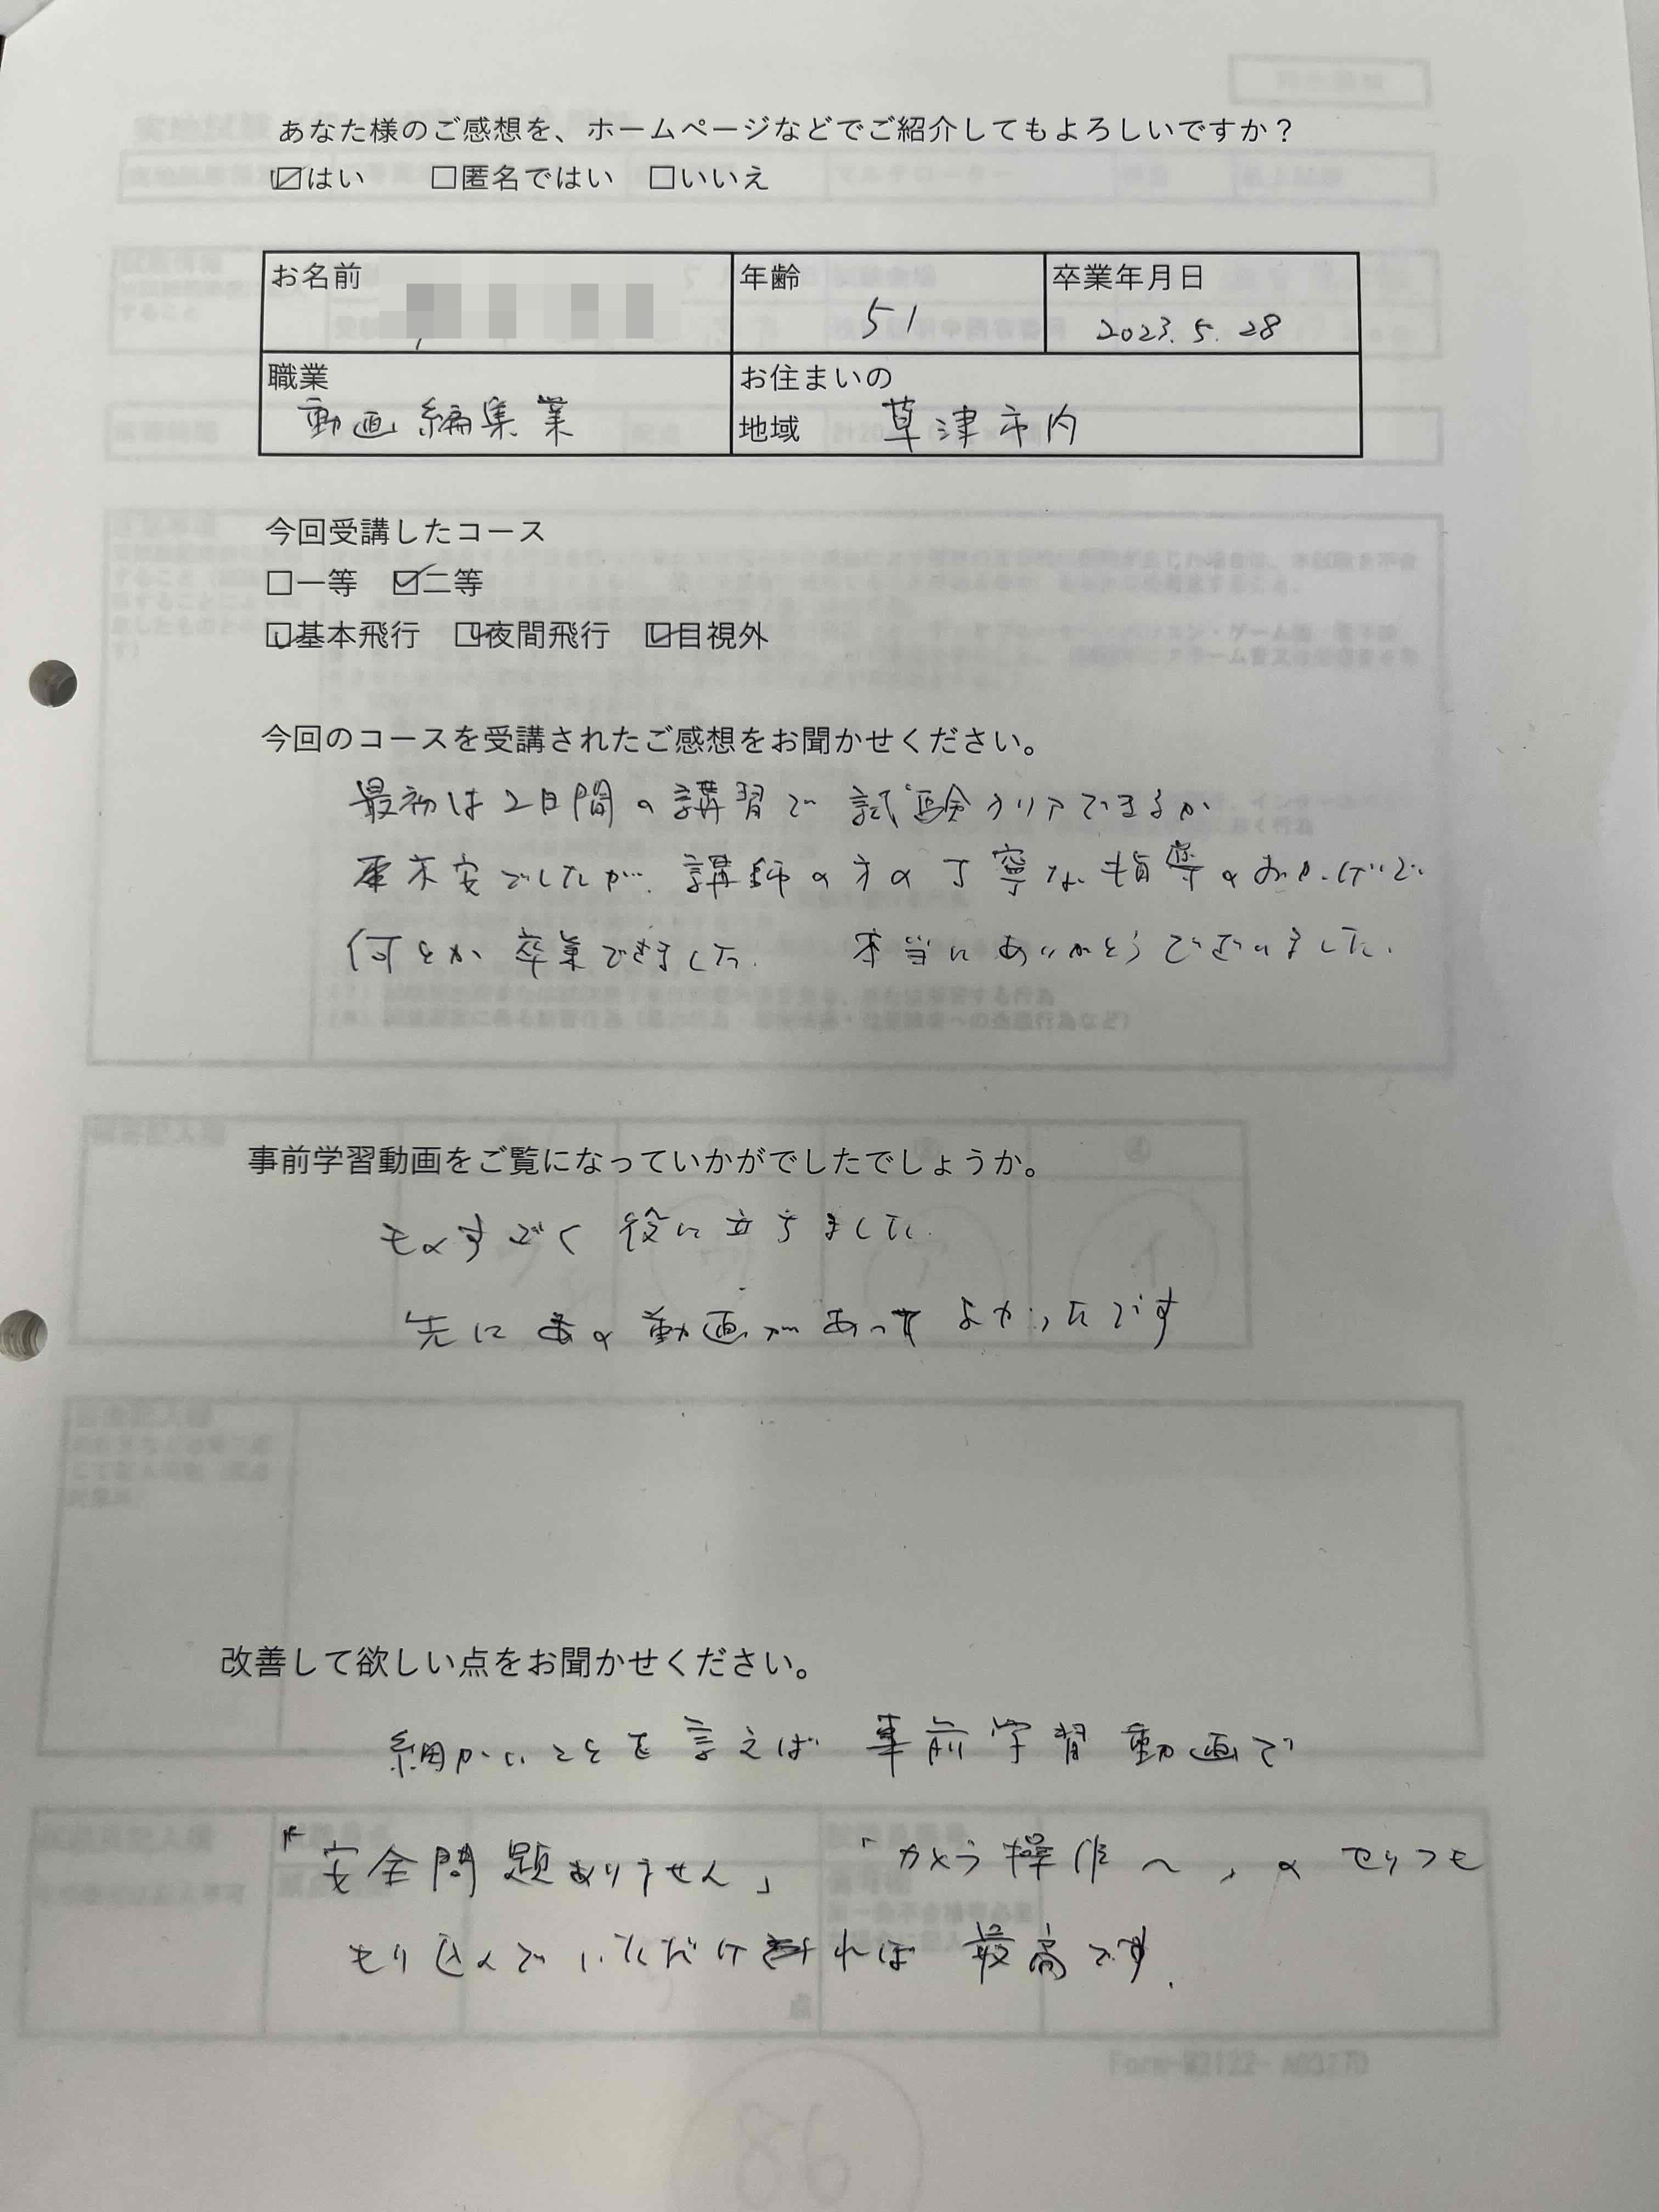 あなた様のご感想を、ホームページなどでご紹介してもよろしいですか？
☑はい　□匿名ではい　□いいえ
お名前
年齢
51
卒業年月日
2023.5.28
職業
動画編集業
お住まいの
地域　草津市内
今回受講したコース
□一等　☑二等
☑基本飛行　☑夜間飛行　☑目視外
今回のコースを受講されたご感想をお聞かせください。
最初は2日間の講習で試験クリアできるか
不安でしたが、講師の方の丁寧な指導のおかげで
何とか卒業できました。　本当にありがとうございました。
事前学習動画をご覧になっていかがでしたでしょうか。
ものすごく役に立ちました
先にあの動画があってよかったです
改善して欲しい点をお聞かせください。
細かいことを言えば事前学習動画で
「安全問題ありません」「カメラ操作〜」のセリフも
もり込んでいただければ最高です。